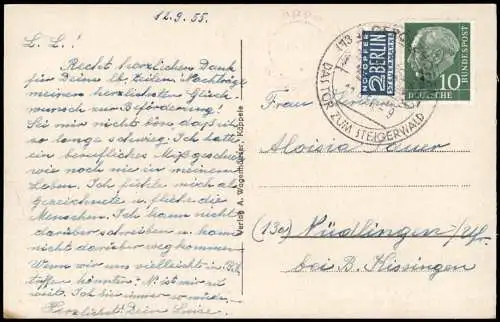 12.9.55.
L. L.!
Recht herzlichen Dank
für Deine lb. Zeilen. Nachträgl.
meinen herzlichsten Glück-
wunsch zur Beförderung!
Sei mir nicht bös, daß ich
so lange schwieg. Ich hatte
ein berufliches Mißgeschick
wie noch nie in meinem
Leben. Ich fühle mich als
Gezeichnete u. fliehe die
Menschen. Ich kann nicht
darüber schreiben u. kann
nicht darüber weg kommen
Wenn wir uns vielleicht in
treffen könnten? N. ist mir zu
weit. Ich bin immer
Herzlichst Dein Luise.
Verlag A. Wagenhäuser, Käppele
(13
GERO
DAS TOR ZUM STEIGERWALD
NOTOPFER
2 BERLIN
STEUERMARKE
10
DEUTSCHE
BUNDESPOST
Frau
Aloisia
(13a) Nüdlingen/Ufr.
bei B. Kissingen